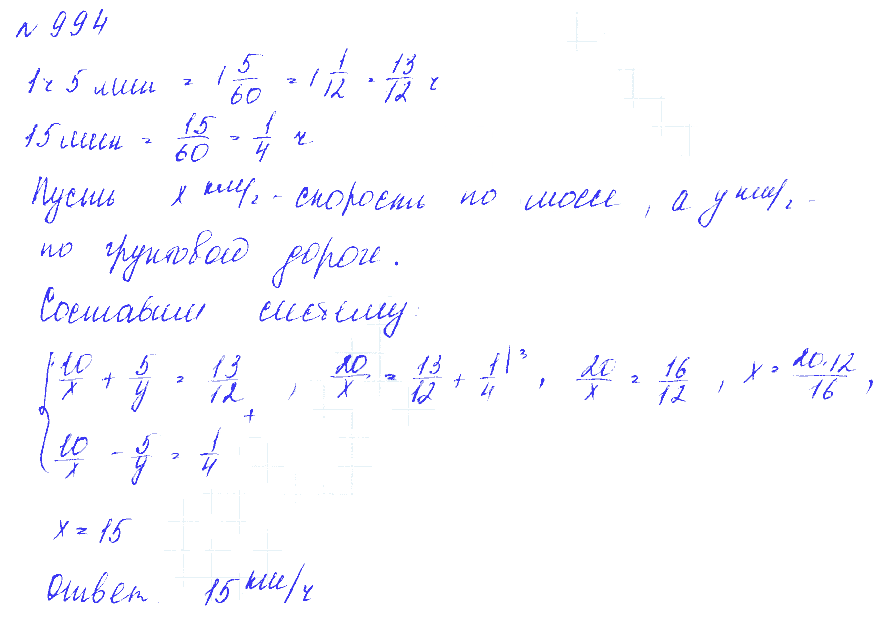 № 994
1ч 5 мин = 1 5/60 = 1 1/12 = 13/12 ч
15 мин = 15/60 = 1/4 ч
Пусть x км/ч - скорость по шоссе, а y км/ч -
по грунтовой дороге.
Составим систему:
{ 10/x + 5/y = 13/12 , 20/x = 13/12 + 1/4 |³ , 20/x = 16/12 , x = 20·12/16 ,
+
10/x - 5/y = 1/4
x = 15
Ответ 15 км/ч